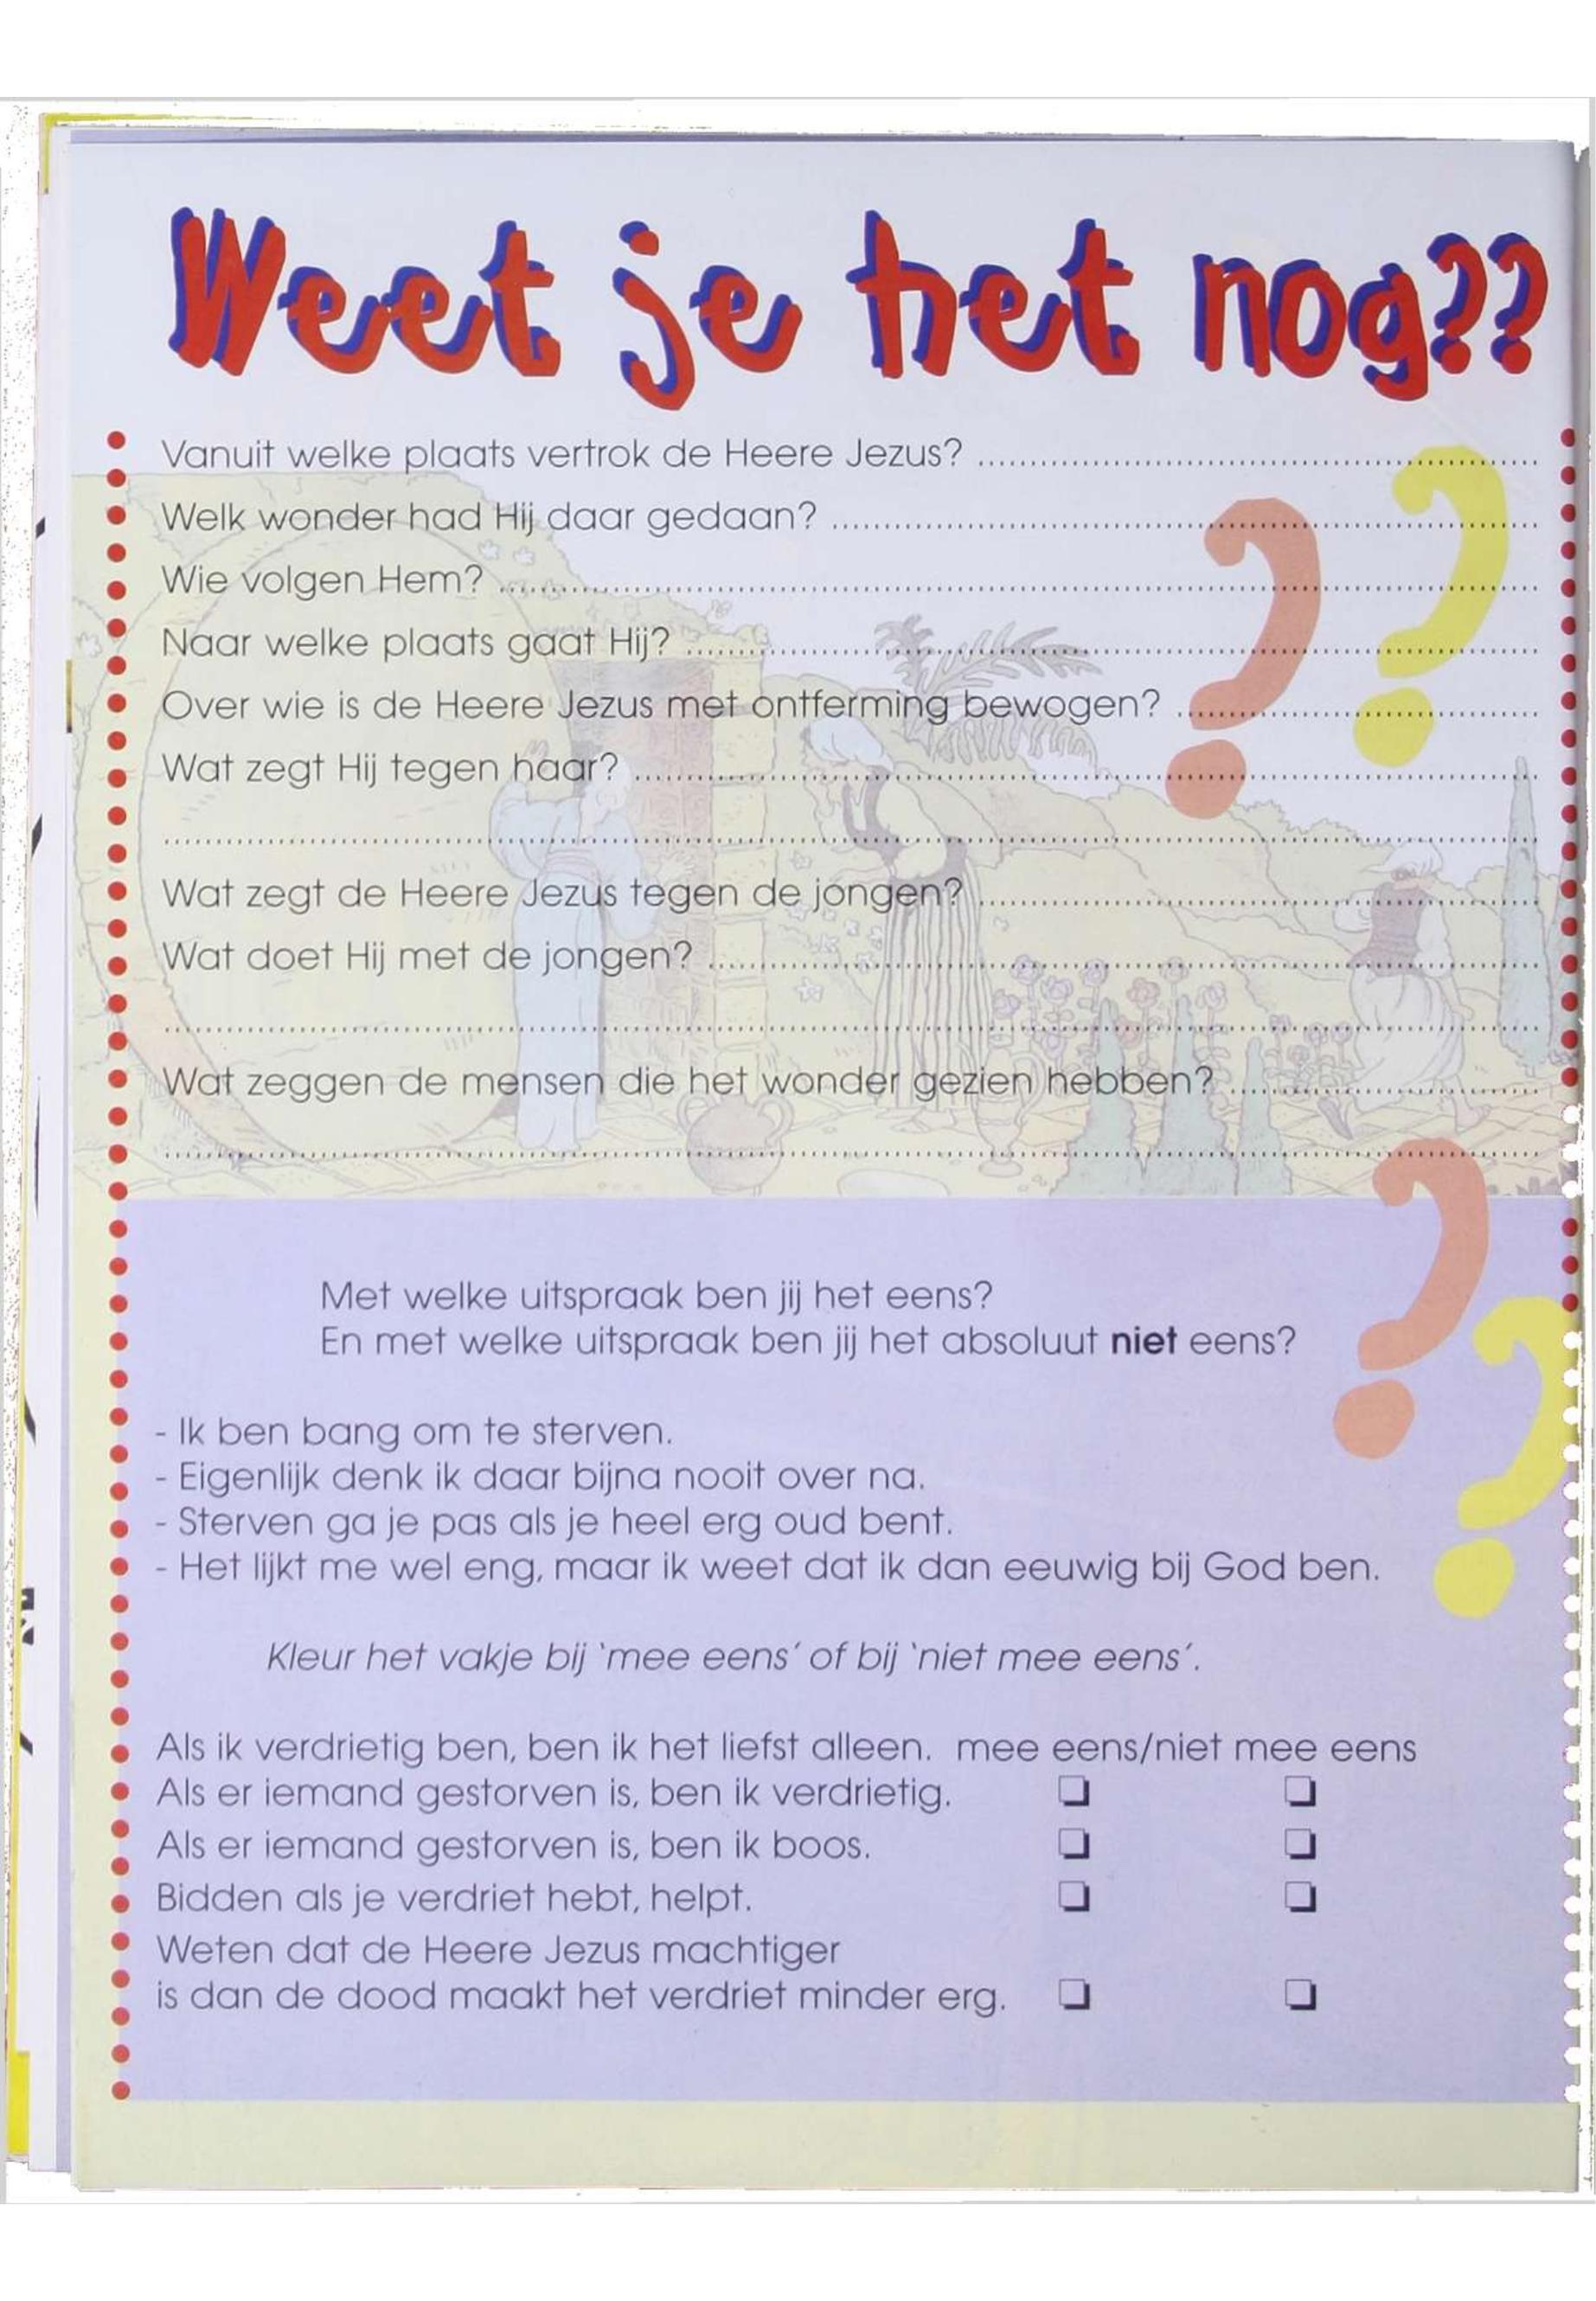 Weet je het nog??
Vanuit welke plaats vertrok de Heere Jezus? ........................................
Welk wonder had Hij daar gedaan? ........................................
Wie volgen Hem? ........................................
Naar welke plaats gaat Hij? ........................................
Over wie is de Heere Jezus met ontferming bewogen? ........................................
Wat zegt Hij tegen haar? ........................................
........................................
Wat zegt de Heere Jezus tegen de jongen? ........................................
Wat doet Hij met de jongen? ........................................
........................................
Wat zeggen de mensen die het wonder gezien hebben? ........................................
........................................
Met welke uitspraak ben jij het eens?
En met welke uitspraak ben jij het absoluut niet eens?
- Ik ben bang om te sterven.
- Eigenlijk denk ik daar bijna nooit over na.
- Sterven ga je pas als je heel erg oud bent.
- Het lijkt me wel eng, maar ik weet dat ik dan eeuwig bij God ben.
Kleur het vakje bij 'mee eens' of bij 'niet mee eens'.
Als ik verdrietig ben, ben ik het liefst alleen. mee eens/niet mee eens
Als er iemand gestorven is, ben ik verdrietig. ❏ ❏
Als er iemand gestorven is, ben ik boos. ❏ ❏
Bidden als je verdriet hebt, helpt. ❏ ❏
Weten dat de Heere Jezus machtiger
is dan de dood maakt het verdriet minder erg. ❏ ❏